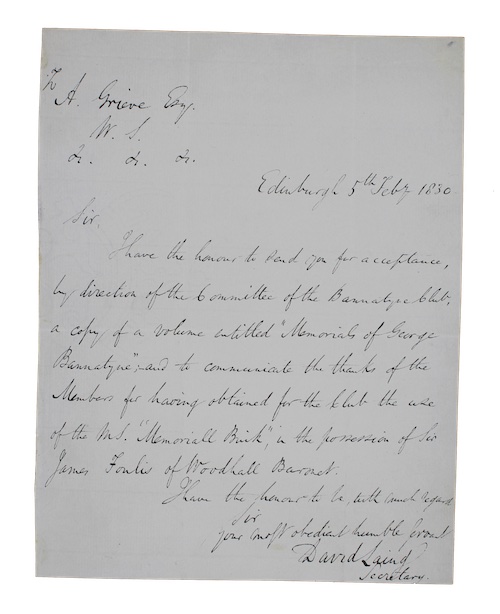 To
A. Grieve Esq.
W. S.
&. &. &.
Edinburgh 5th Feby 1830
Sir,
I have the honour to send you for acceptance,
by direction of the Committee of the Bannatyne Club,
a copy of a volume entitled "Memorials of George
Bannatyne"; and to communicate the thanks of the
Members for having obtained for the Club the use
of the M.S. "Memoriall Buik", in the possession of Sir
James Foulis of Woodhall Baronet.
I have the honour to be, with much regard
Sir
your most obedient humble Servt
David Laing
Secretary.